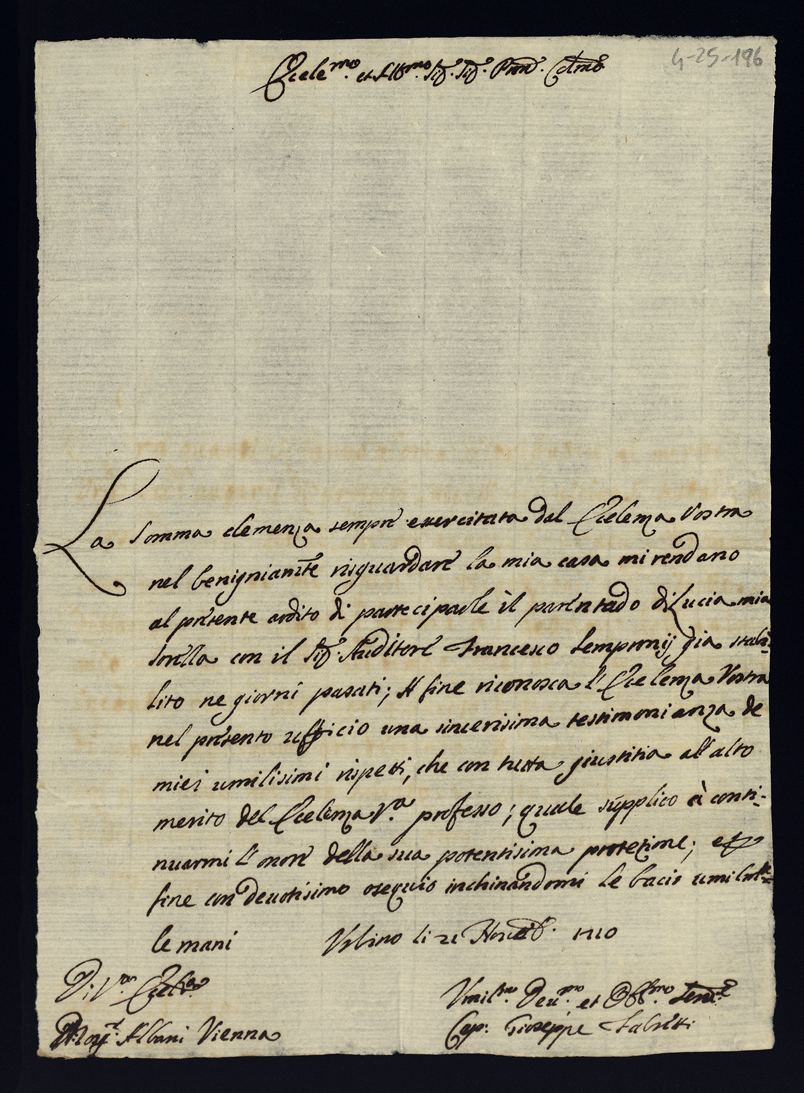 4-25-196
Eccle.mo et Ill.mo Sig. Sig. Pron. Colmo
La somma clemenza sempre esercitata dal Eccelenza Vostra
nel benigniamte risguardare la mia casa mi rendano
al presente ardito di parteciparle il parentado di Lucia mia
sorella con il Sig. Auditore Francesco Sempronij gia stabi-
lito ne giorni pasati; A fine riconosca l'Eccelenza Vostra
nel presento ufficio una sincerisima testimonianza de
miei umilisimi rispetti, che con tutta giustitia all'alto
merito del Eccelenza V.a professo; quale supplico à conti-
nuarmi l'onore della sua potentisima protezione; e
fine con devotisimo osequio inchinandomi le bacio umilmte
le mani Urbino li 21 Novemb. 1710
Di V.ra Eccelza
Albani Vienna
Umil.mo Deu.mo et Obl.mo Serre
Cap. Gioseppe